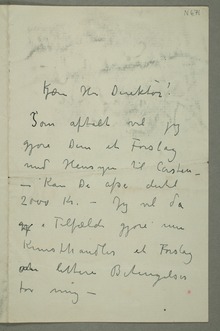 N 641
Kære Hr Direktör!
Som aftalt vil jeg
gjöre Dem et Forslag
med Hensyn til Carsten
– Kan De afse dertil
2000 Kr. – Jeg vil da
i Tilfælde gjöre min
Kunsthandler et Forslag
om lettere Betingelser
for mig –